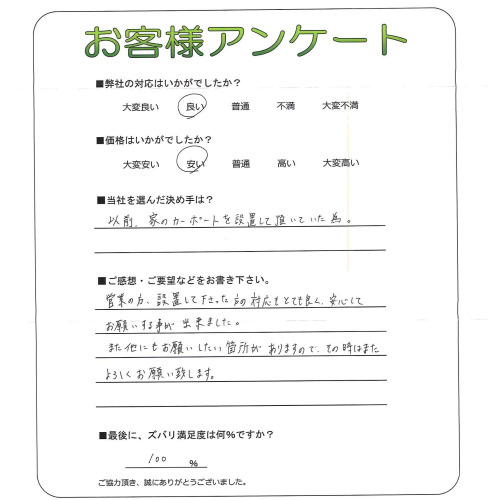 お客様アンケート
■弊社の対応はいかがでしたか？
大変良い 良い 普通 不満 大変不満
■価格はいかがでしたか？
大変安い 安い 普通 高い 大変高い
■当社を選んだ決め手は？
以前、家のカーポートを設置して頂いていた為。
■ご感想・ご要望などをお書き下さい。
営業の方、設置して下さった方の対応もとても良く、安心して
お願いする事が出来ました。
また他にもお願いしたい箇所がありますので、その時はまた
よろしくお願い致します。
■最後に、ズバリ満足度は何%ですか？
100 %
ご協力頂き、誠にありがとうございました。